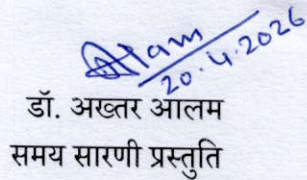 Alam
20.4.2026
डॉ. अख्तर आलम
समय सारणी प्रस्तुति